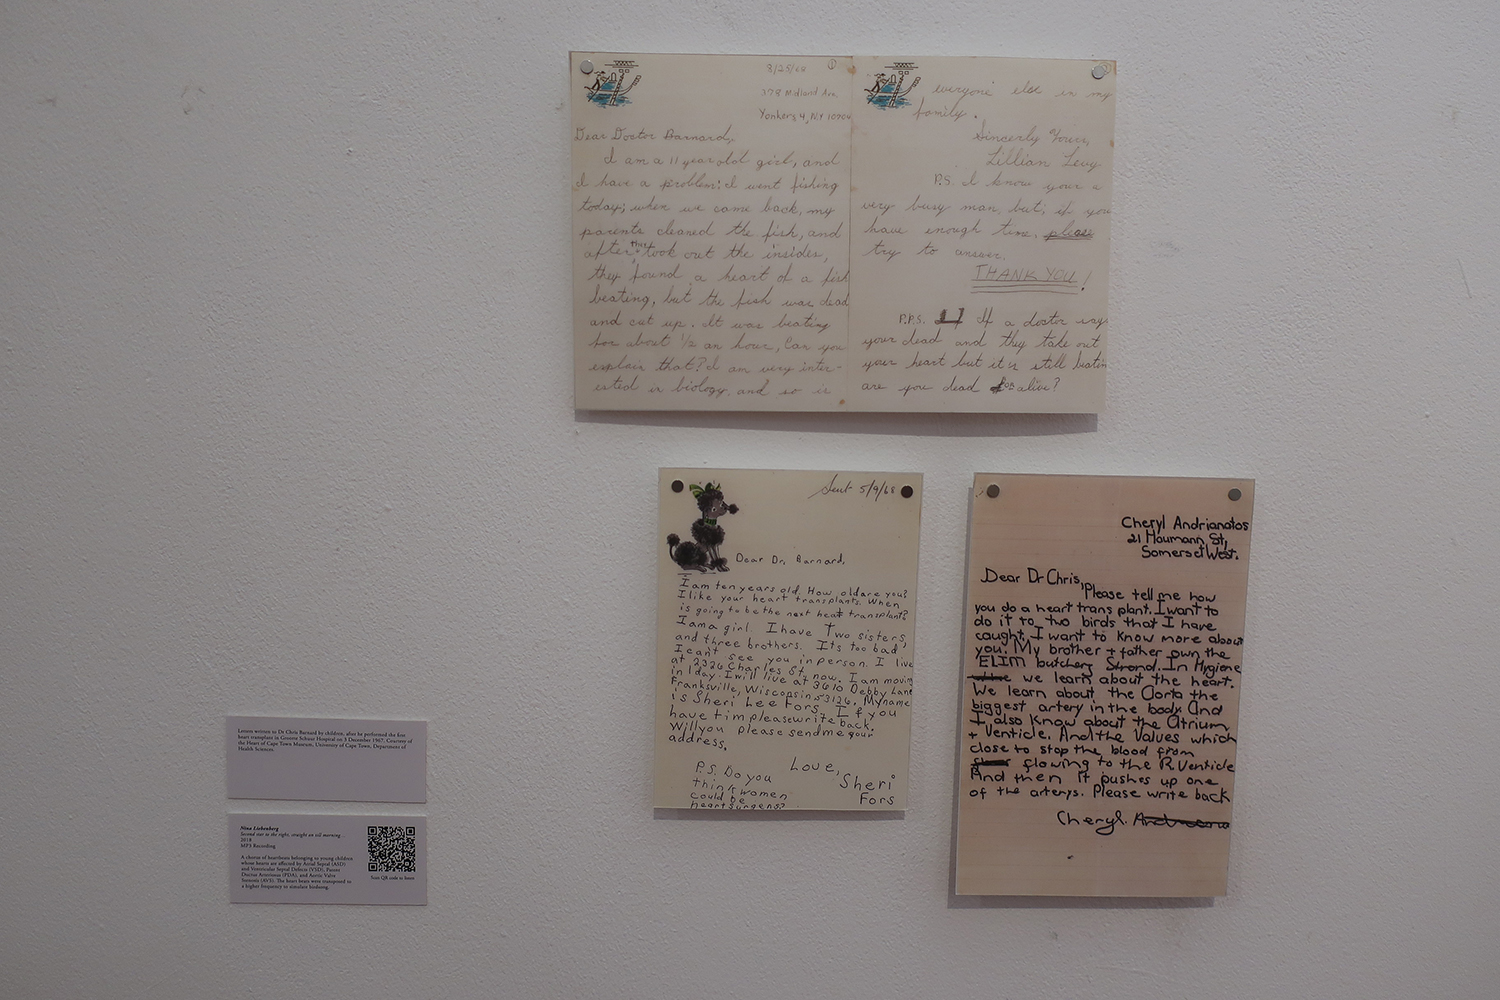 8/25/68
379 Midland Ave.
Yonkers 4, N.Y. 10704
Dear Doctor Barnard,
I am a 11 year old girl, and
I have a problem: I went fishing
today; when we came back, my
parents cleaned the fish, and
after they took out the insides,
they found a heart of a fish
beating, but the fish was dead
and cut up. It was beating
for about ½ an hour, Can you
explain that? I am very inter-
ested in biology, and so is
everyone else in my
family.
Sincerely Yours,
Lillian Levy
P.S. I know your a
very busy man, but, if you
have enough time, please
try to answer.
THANK YOU!
P.P.S. If a doctor says
your dead and they take out
your heart but it is still beatin
are you dead or alive?
Sent 5/9/68
Dear Dr. Barnard,
I am ten years old. How old are you?
I like your heart transplants. When
is going to be the next heat transplant?
I am a girl. I have Two sisters,
and three brothers. Its too bad
I can't see you in person. I live
at 2326 Charles St. now. I am moving
in 1 day. I will live at 3610 Debby Lane
Franksville, Wisconsin 53126. My name
is Sheri Lee Fors. If you
have tim please write back.
Will you please send me your
address.
Love,
Sheri
Fors
P.S. Do you
think women
could be
heart surgens?
Cheryl Andrianatos
21 Houmann St,
Somerset West.
Dear Dr Chris,
Please tell me how
you do a heart trans plant. I want to
do it to two birds that I have
caught. I want to know more about
you. My brother + father own the
ELIM butchery Strand. In Hygiene
we learn about the heart.
We learn about the Aorta the
biggest artery in the body. And
I also know about the Atrium
+ Venticle. And the Valves which
close to stop the blood from
flowing to the R. Venticle
And then it pushes up one
of the arterys. Please write back
Cheryl.
Letters written to Dr Chris Barnard by children, after he performed the first
heart transplant in Groote Schuur Hospital on 3 December 1967. Courtesy of
the Heart of Cape Town Museum, University of Cape Town, Department of
Health Sciences
Nina Liebenberg
Second star to the right, straight on till morning...
2018
MP3 Recording
A chorus of heartbeats belonging to young children
whose hearts are affected by Atrial Septal (ASD)
and Ventricular Septal Defects (VSD), Patent
Ductus Arteriosus (PDA), and Aortic Valve
Stenosis (AVS). The heart beats were transposed to
a higher frequency to simulate birdsong.
Scan QR code to listen